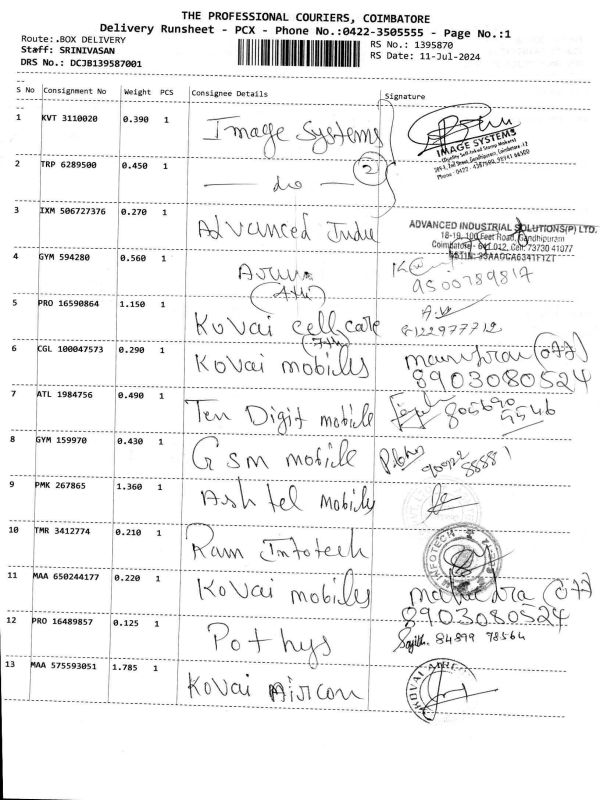 THE PROFESSIONAL COURIERS, COIMBATORE
Delivery Runsheet - PCX - Phone No.:0422-3505555 - Page No.:1
Route:.BOX DELIVERY
RS No.: 1395870
Staff: SRINIVASAN
RS Date: 11-Jul-2024
DRS No.: DCJB139587001
S No Consignment No Weight PCS Consignee Details Signature
1 KVT 3110020 0.390 1 Image Systems
IMAGE SYSTEMS
2 TRP 6289500 0.450 1 do 2
3 IXM 506727376 0.270 1 Advanced Indu
ADVANCED INDUSTRIAL SOLUTIONS(P) LTD.
18-19, 100 Feet Road, Gandhipuram
Coimbatore - 641 012, Cell: 73730 41077
4 GYM 594280 0.560 1 Arun
9500789817
5 PRO 16590864 1.150 1 Kovai cell care
8122977712
6 CGL 100047573 0.290 1 Kovai mobiles
8903080524
7 ATL 1984756 0.490 1 Ten Digit mobile
805690
5546
8 GYM 159970 0.430 1 Gsm mobile
9 PMK 267865 1.360 1 Ashtel mobiles
10 TMR 3412774 0.210 1 Ram Infotech
11 MAA 650244177 0.220 1 Kovai mobiles
8903080524
12 PRO 16489857 0.125 1 Pothys
84899 78564
13 MAA 575593051 1.785 1 Kovai Aircon